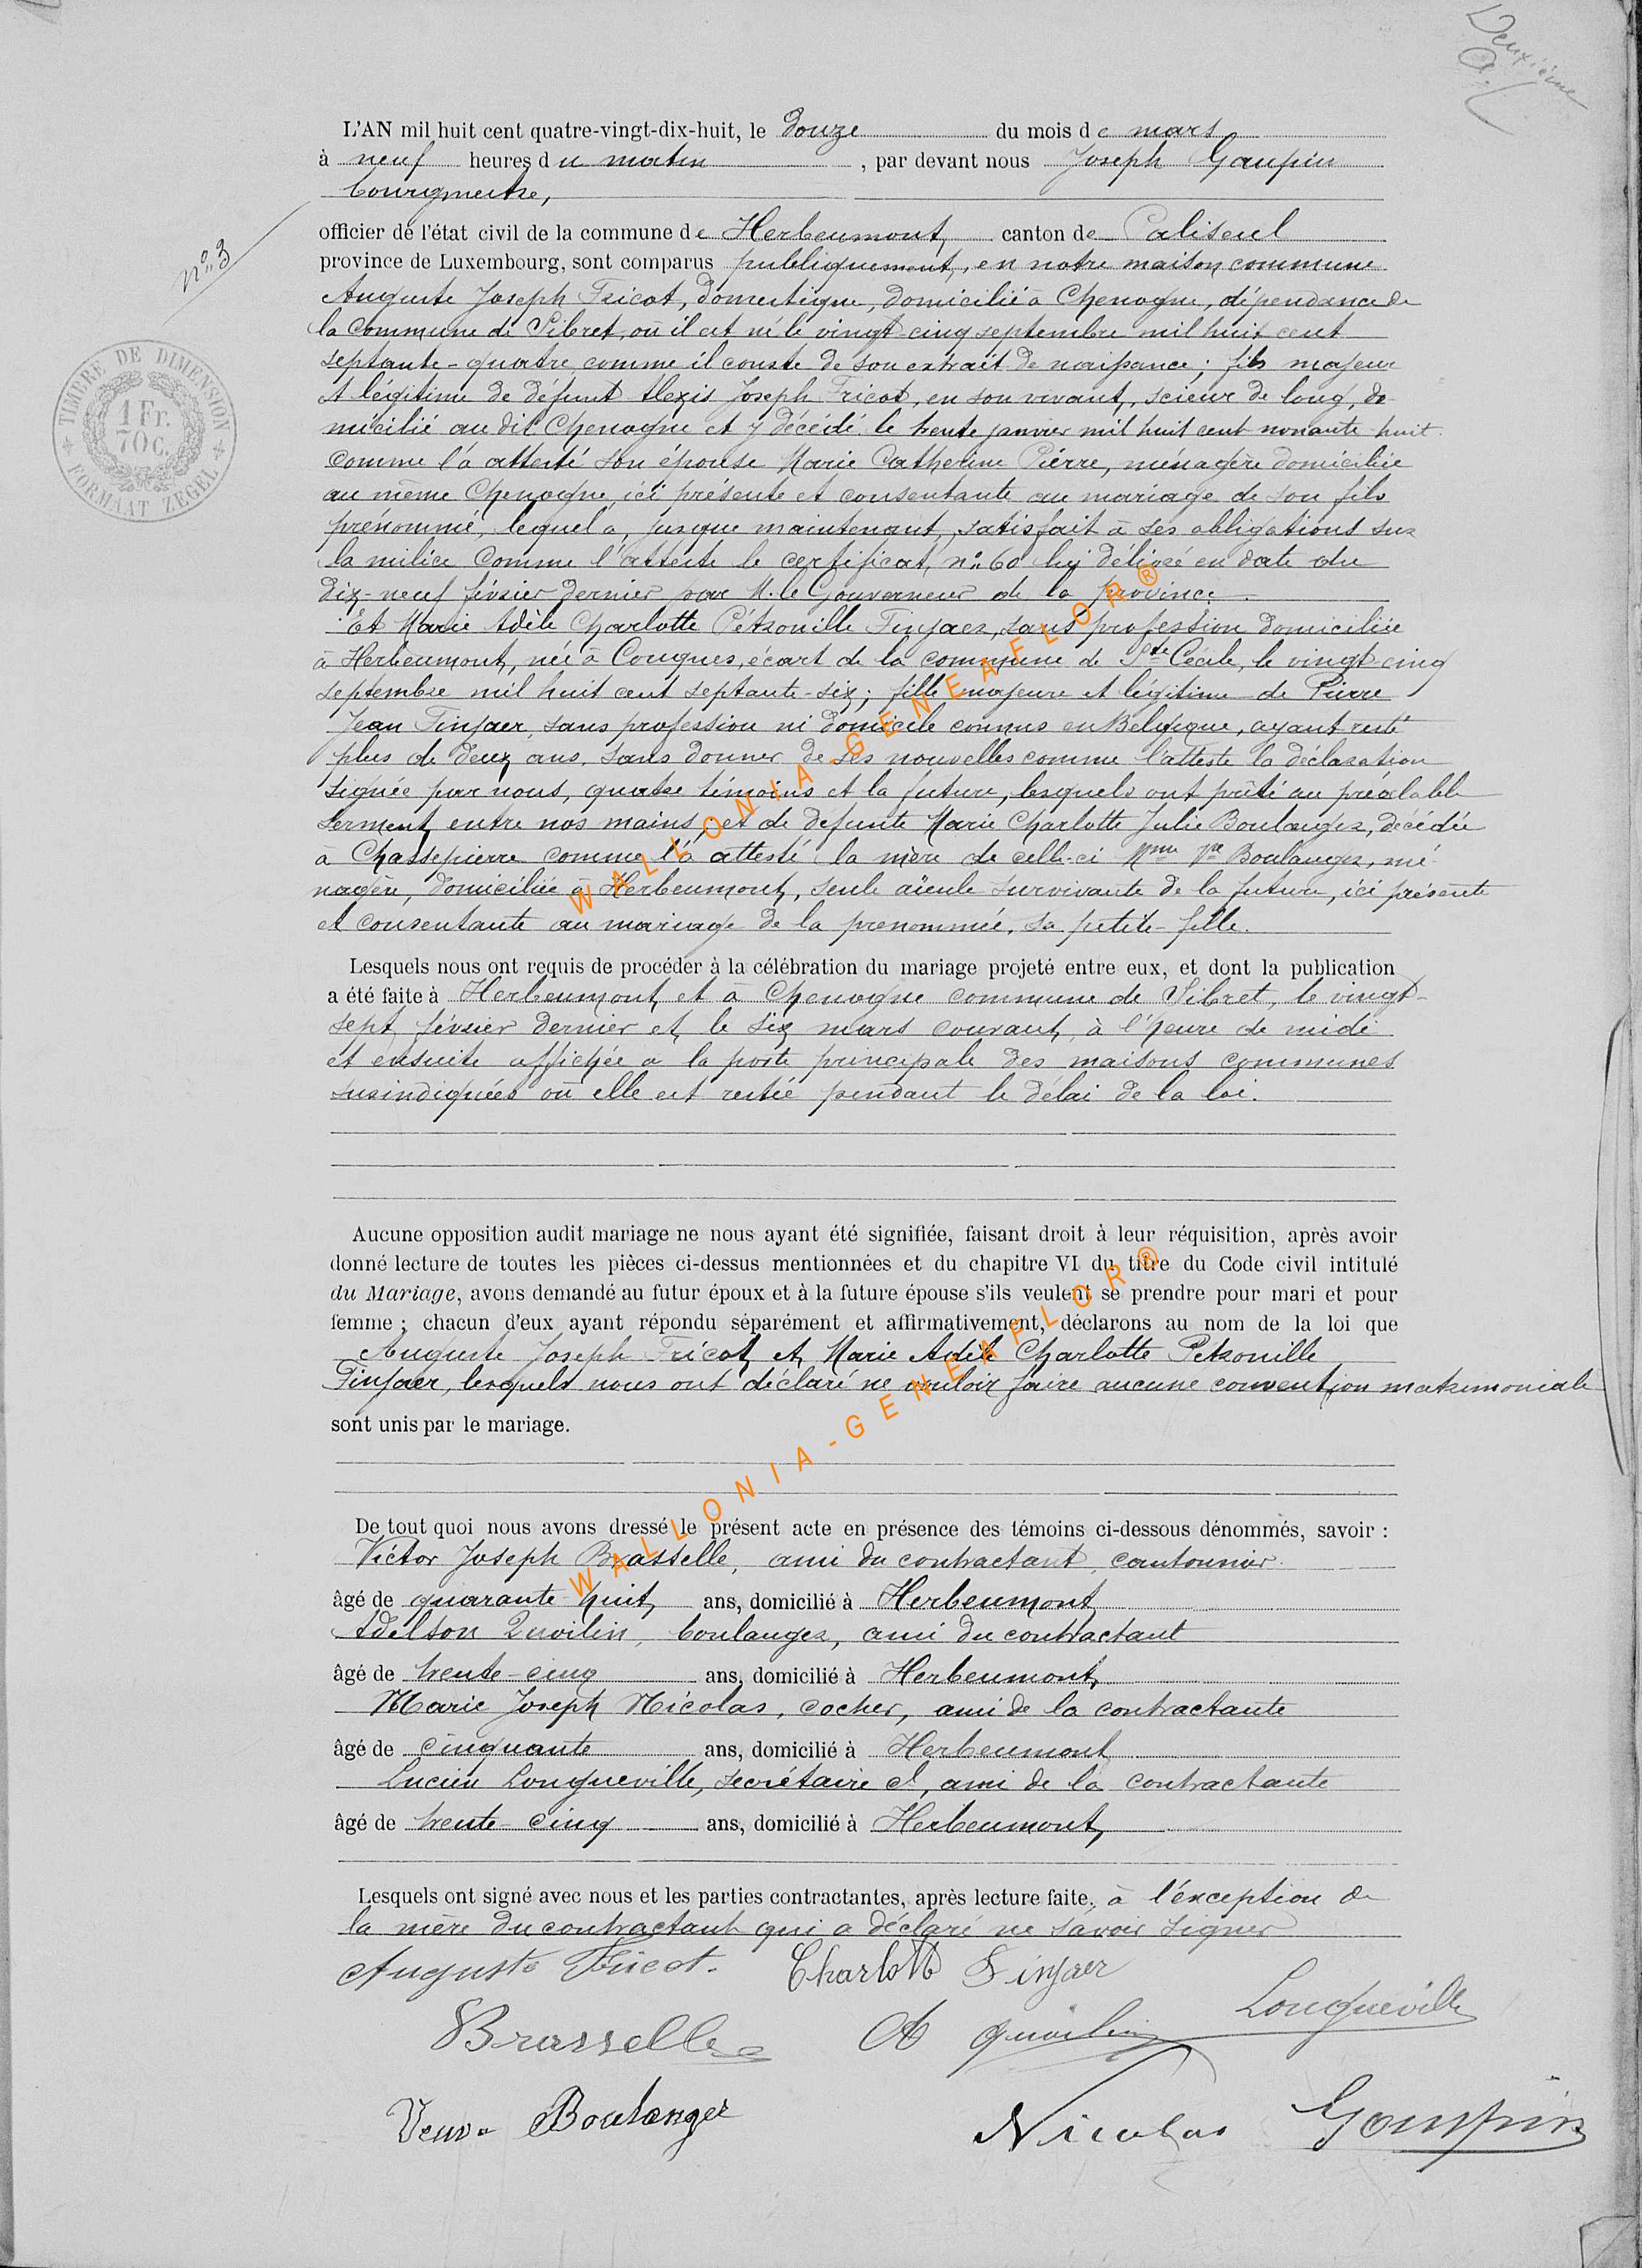 Deuxième
L'AN mil huit cent quatre-vingt-dix-huit, le douze du mois de mars
à neuf heures du matin, par devant nous Joseph Gaupin
bourgmestre,
officier de l'état civil de la commune de Herbeumont, canton de Paliseul
n° 3
province de Luxembourg, sont comparus publiquement, en notre maison commune
Auguste Joseph Fricot, domestique, domicilié à Chenogne, dépendance de
la commune de Sibret, où il est né le vingt-cinq septembre mil huit cent
septante-quatre comme il conste de son extrait de naissance; fils majeur
et légitime de défunt Alexis Joseph Fricot, en son vivant, scieur de long, do-
micilié au dit Chenogne et y décédé le trente janvier mil huit cent nonante huit
comme l'a attesté son épouse Marie Catherine Pierre, ménagère domiciliée
au même Chenogne, ici présente et consentante au mariage de son fils
prénommé, lequel a, jusque maintenant, satisfait à ses obligations sur
la milice comme l'atteste le certificat n° 60 lui délivré en date du
dix-neuf février dernier par M. le Gouverneur de la province.
Et Marie Adèle Charlotte Pétronille Finfaer, sans profession domiciliée
à Herbeumont, née à Conques, écart de la commune de Ste Cécile, le vingt-cinq
septembre mil huit cent septante-six; fille majeure et légitime de Pierre
Jean Finfaer, sans profession ni domicile connus en Belgique, ayant resté
plus de deux ans, sans donner de ses nouvelles comme l'atteste la déclaration
signée par nous, quatre témoins et la future, lesquels ont prêté au préalable
serment entre nos mains; et de défunte Marie Charlotte Julie Boulanger, décédée
à Chassepierre comme l'a attesté la mère de celle-ci Mme Vve Boulanger, mé-
nagère, domiciliée à Herbeumont, seule aïeule survivante de la future, ici présente
et consentante au mariage de la prenommée, sa petite-fille.
Lesquels nous ont requis de procéder à la célébration du mariage projeté entre eux, et dont la publication
a été faite à Herbeumont et à Chenogne commune de Sibret, le vingt-
sept février dernier et le six mars courant, à l'heure de midi
et ensuite affichée a la porte principale des maisons communes
susindiquées où elle est restée pendant le délai de la loi.
Aucune opposition audit mariage ne nous ayant été signifiée, faisant droit à leur réquisition, après avoir
donné lecture de toutes les pièces ci-dessus mentionnées et du chapitre VI du titre du Code civil intitulé
du Mariage, avons demandé au futur époux et à la future épouse s'ils veulent se prendre pour mari et pour
femme ; chacun d'eux ayant répondu séparément et affirmativement, déclarons au nom de la loi que
Auguste Joseph Fricot et Marie Adèle Charlotte Pétronille
Finfaer, lesquels nous ont déclaré ne vouloir faire aucune convention matrimoniale
sont unis par le mariage.
De tout quoi nous avons dressé le présent acte en présence des témoins ci-dessous dénommés, savoir :
Victor Joseph Brasselle, ami du contractant, cantonnier
âgé de quarante-huit ans, domicilié à Herbeumont
Adelson Quoilin, boulanger, ami du contractant
âgé de trente-cinq ans, domicilié à Herbeumont
Marie Joseph Nicolas, cocher, ami de la contractante
âgé de cinquante ans, domicilié à Herbeumont
Lucien Longueville, secrétaire cl, ami de la contractante
âgé de trente-cinq ans, domicilié à Herbeumont
Lesquels ont signé avec nous et les parties contractantes, après lecture faite, à l'exception de
la mère du contractant qui a déclaré ne savoir signer
Auguste Fricot. Charlotte Finfaer
Longueville
Brasselle A Quoilin
Veuve Boulanger Nicolas Gaupin
TIMBRE DE DIMENSION
1 Fr.
70 C.
FORMAAT ZEGEL
WALLONIA-GENEAFLOR®
WALLONIA-GENEAFLOR®